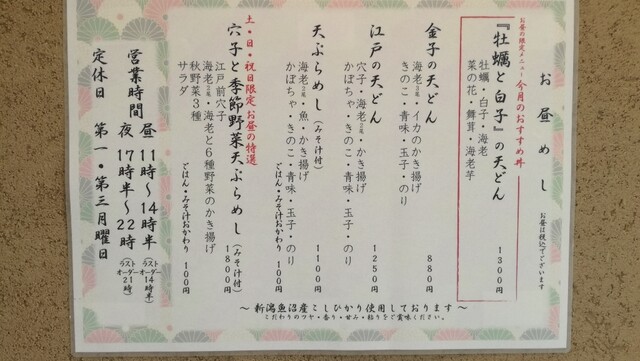 お昼めし
お昼は税込でございます
お昼の限定メニュー 今月のおすすめ丼
『牡蠣と白子』の天どん 1300円
牡蠣・白子・海老
菜の花・舞茸・海老芋
金子の天どん 880円
海老2尾・イカのかき揚げ
きのこ・青味・玉子・のり
江戸の天どん 1250円
穴子・海老2尾・かき揚げ
かぼちゃ・きのこ・青味・玉子・のり
天ぷらめし(みそ汁付) 1100円
海老2尾・魚・かき揚げ
かぼちゃ・きのこ・青味・玉子・のり
ごはん・みそ汁おかわり 100円
土・日・祝日限定 お昼の特選
穴子と季節野菜天ぷらめし(みそ汁付) 1800円
江戸前穴子
海老2尾・海老と6種野菜のかき揚げ
秋野菜3種
サラダ
ごはん・みそ汁おかわり 100円
営業時間
昼 11時〜14時半(ラストオーダー14時半)
夜 17時半〜22時(ラストオーダー21時)
定休日 第一・第三月曜日
〜新潟魚沼産こしひかり使用しております〜
こだわりのツヤ・香り・甘み・粘りをご賞味ください。